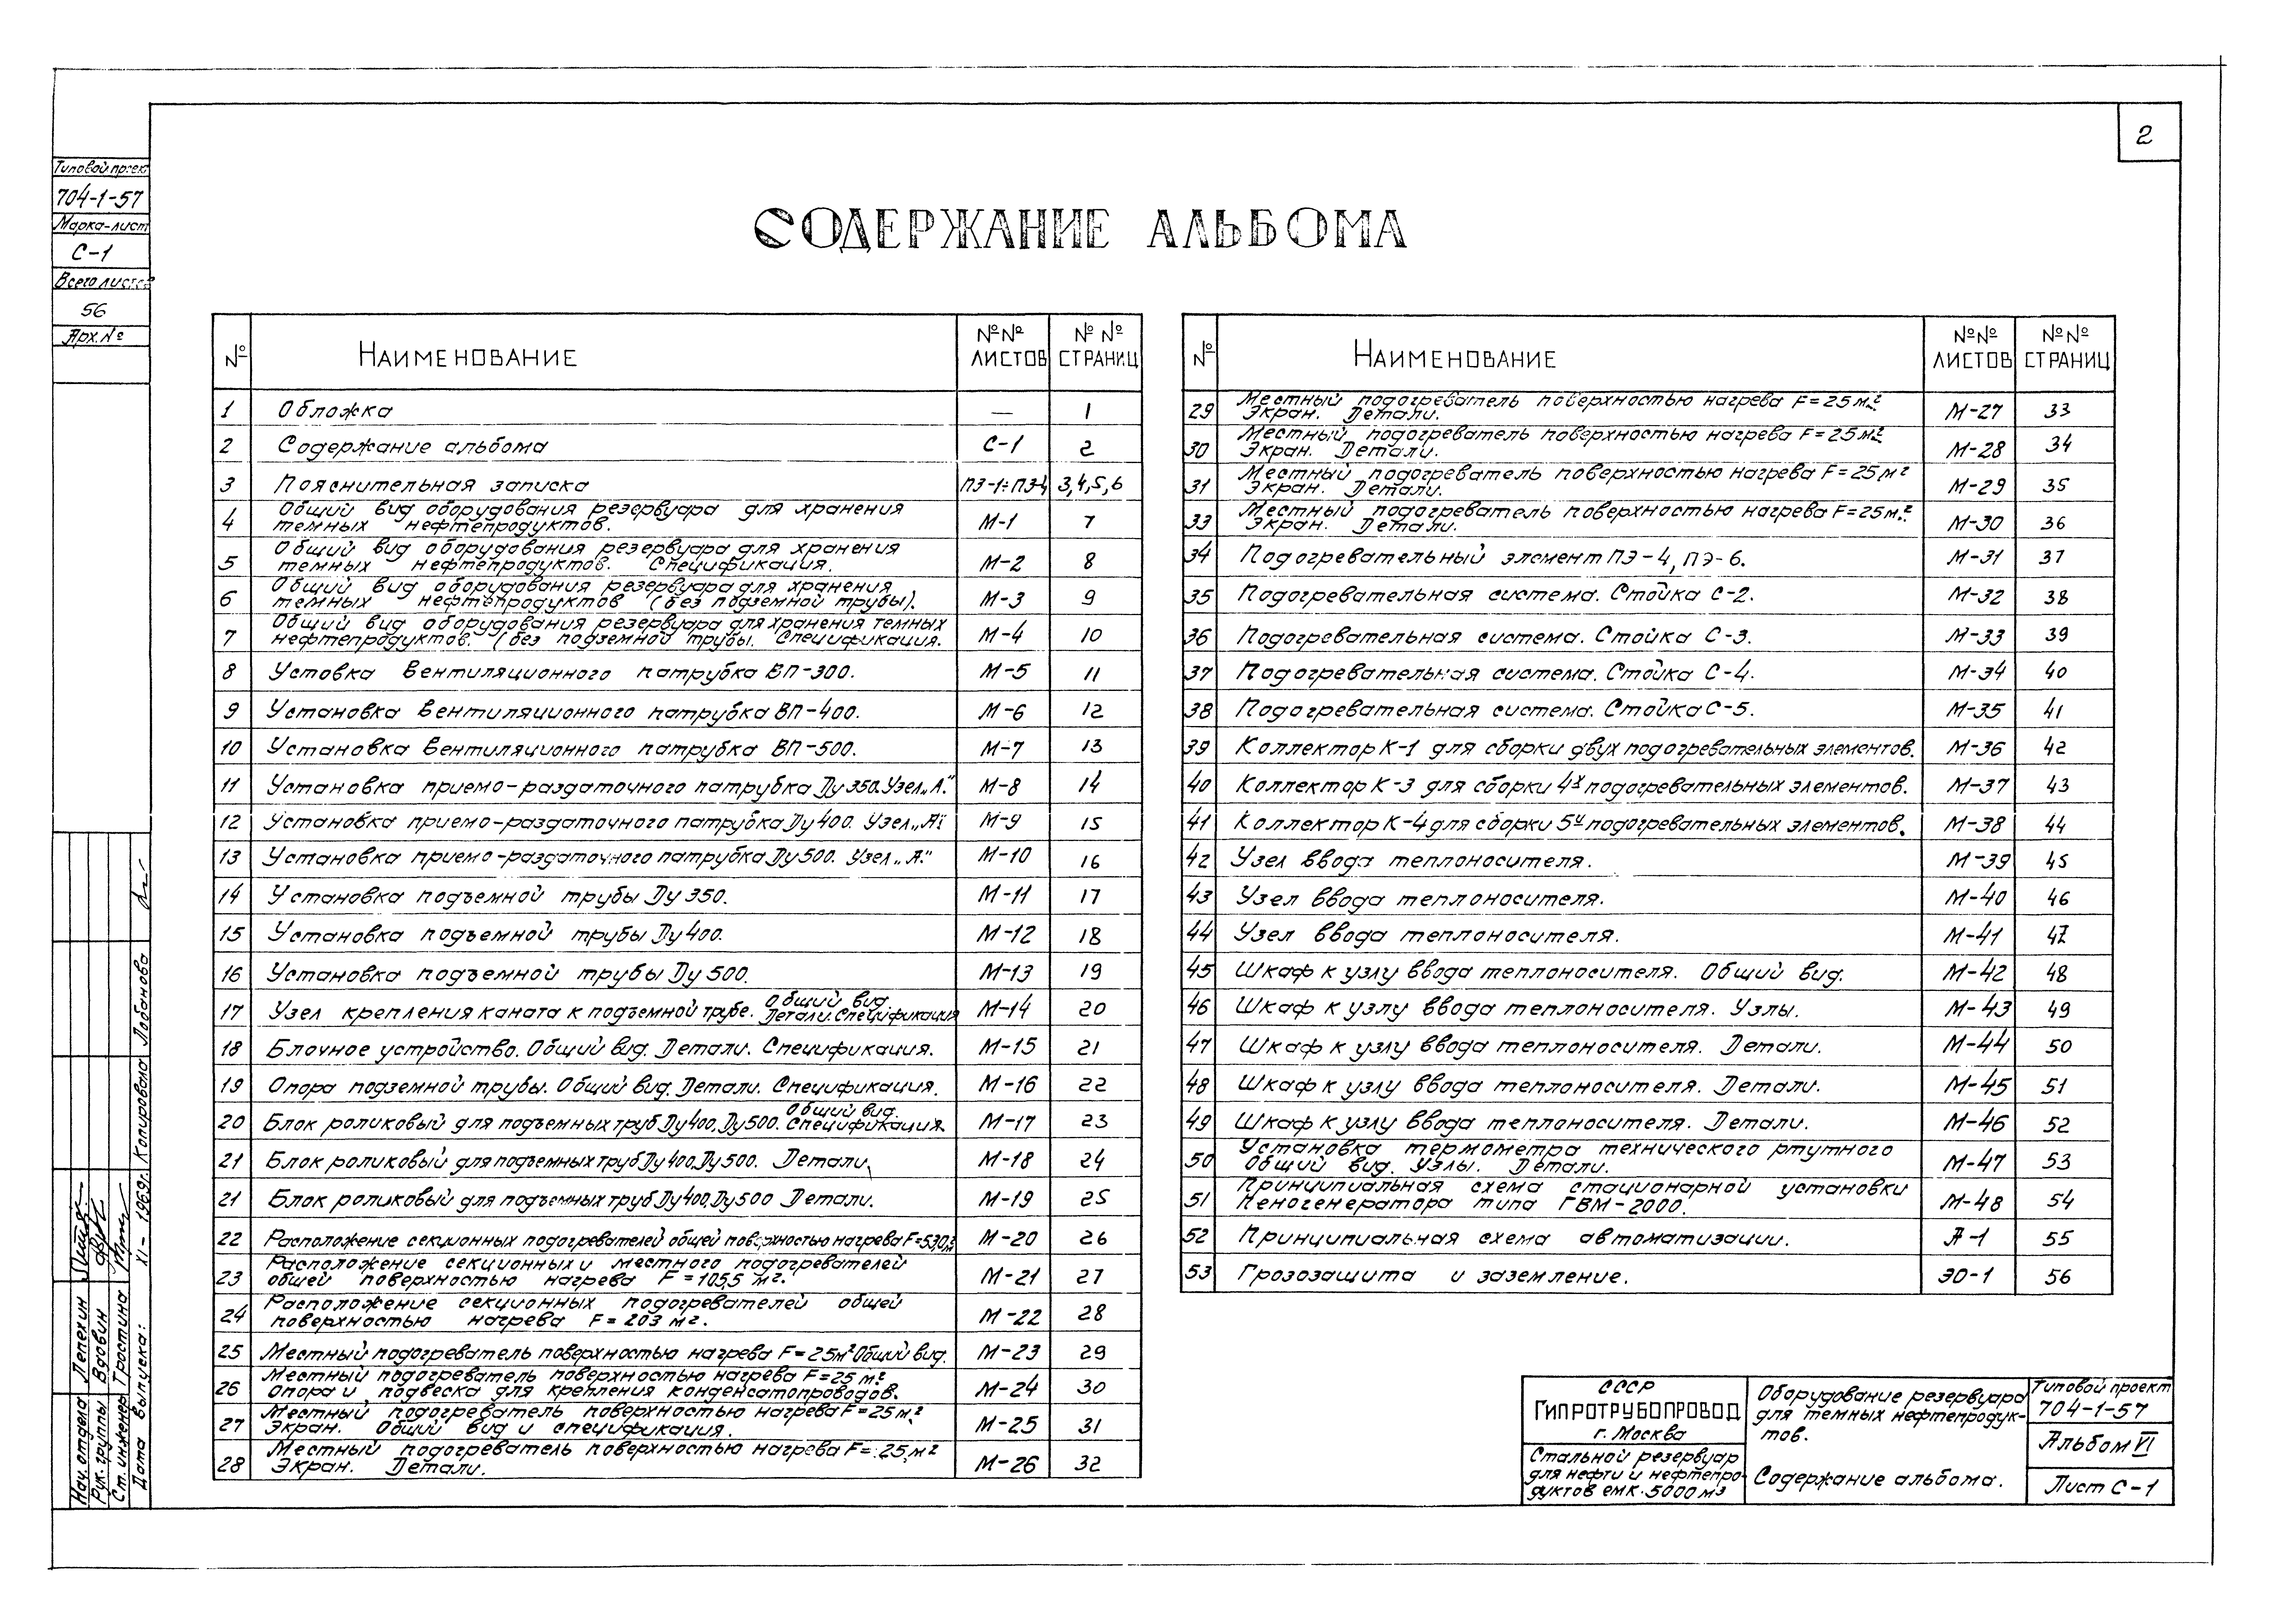 2
Типовой проект
704-1-57
Марка-лист
С-1
Всего листов
56
Арх.№
СОДЕРЖАНИЕ АЛЬБОМА
№ НАИМЕНОВАНИЕ №№ ЛИСТОВ №№ СТРАНИЦ
1 Обложка — 1
2 Содержание альбома С-1 2
3 Пояснительная записка ПЗ-1÷ПЗ-4 3,4,5,6
4 Общий вид оборудования резервуара для хранения
темных нефтепродуктов. М-1 7
5 Общий вид оборудования резервуара для хранения
темных нефтепродуктов. Спецификация. М-2 8
6 Общий вид оборудования резервуара для хранения
темных нефтепродуктов (без подземной трубы). М-3 9
7 Общий вид оборудования резервуара для хранения темных
нефтепродуктов. (без подземной трубы. Спецификация. М-4 10
8 Устовка вентиляционного патрубка ВП-300. М-5 11
9 Установка вентиляционного патрубка ВП-400. М-6 12
10 Установка вентиляционного патрубка ВП-500. М-7 13
11 Установка приемо-раздаточного патрубка Ду 350. Узел „А." М-8 14
12 Установка приемо-раздаточного патрубка Ду 400. Узел „А" М-9 15
13 Установка приемо-раздаточного патрубка Ду 500. Узел „А." М-10 16
14 Установка подъемной трубы Ду 350. М-11 17
15 Установка подъемной трубы Ду 400. М-12 18
16 Установка подъемной трубы Ду 500. М-13 19
17 Узел крепления каната к подъемной трубе. Общий вид.
Детали. Спецификация М-14 20
18 Блочное устройство. Общий вид. Детали. Спецификация. М-15 21
19 Опора подземной трубы. Общий вид. Детали. Спецификация. М-16 22
20 Блок роликовый для подъемных труб Ду 400, Ду 500. Общий вид.
Спецификация. М-17 23
21 Блок роликовый для подъемных труб Ду 400, Ду 500. Детали. М-18 24
21 Блок роликовый для подъемных труб Ду 400, Ду 500 Детали. М-19 25
22 Расположение секционных подогревателей общей поверхностью нагрева F=53,0м² М-20 26
23 Расположение секционных и местного подогревателей
общей поверхностью нагрева F=105,5 м². М-21 27
24 Расположение секционных подогревателей общей
поверхностью нагрева F=203 м². М-22 28
25 Местный подогреватель поверхностью нагрева F=25м² Общий вид. М-23 29
26 Местный подогреватель поверхностью нагрева F=25 м².
Опора и подвеска для крепления конденсатопроводов. М-24 30
27 Местный подогреватель поверхностью нагрева F=25 м².
Экран. Общий вид и спецификация. М-25 31
28 Местный подогреватель поверхностью нагрева F=25 м²
Экран. Детали. М-26 32
№ НАИМЕНОВАНИЕ №№ ЛИСТОВ №№ СТРАНИЦ
29 Местный подогреватель поверхностью нагрева F=25 м²
Экран. Детали. М-27 33
30 Местный подогреватель поверхностью нагрева F=25 м²
Экран. Детали. М-28 34
31 Местный подогреватель поверхностью нагрева F=25 м²
Экран. Детали. М-29 35
33 Местный подогреватель поверхностью нагрева F=25 м².
Экран. Детали. М-30 36
34 Подогревательный элемент ПЭ-4, ПЭ-6. М-31 37
35 Подогревательная система. Стойка С-2. М-32 38
36 Подогревательная система. Стойка С-3. М-33 39
37 Подогревательная система. Стойка С-4. М-34 40
38 Подогревательная система. Стойка С-5. М-35 41
39 Коллектор К-1 для сборки двух подогревательных элементов. М-36 42
40 Коллектор К-3 для сборки 4х подогревательных элементов. М-37 43
41 Коллектор К-4 для сборки 5и подогревательных элементов. М-38 44
42 Узел ввода теплоносителя. М-39 45
43 Узел ввода теплоносителя. М-40 46
44 Узел ввода теплоносителя. М-41 47
45 Шкаф к узлу ввода теплоносителя. Общий вид. М-42 48
46 Шкаф к узлу ввода теплоносителя. Узлы. М-43 49
47 Шкаф к узлу ввода теплоносителя. Детали. М-44 50
48 Шкаф к узлу ввода теплоносителя. Детали. М-45 51
49 Шкаф к узлу ввода теплоносителя. Детали. М-46 52
50 Установка термометра технического ртутного
Общий вид. Узлы. Детали. М-47 53
51 Принципиальная схема стационарной установки
Пеногенератора типа ГВМ-2000. М-48 54
52 Принципиальная схема автоматизации. А-1 55
53 Грозозащита и заземление. ЭО-1 56
Нач. отдела Лепехин
Рук. группы Вдовин
Ст. инженер Тростина
Дата выпуска: XI- 1969г. Копировала Лобанова
СССР
ГИПРОТРУБОПРОВОД
г. Москва
Стальной резервуар
для нефти и нефтепро-
дуктов емк. 5000 м³
Оборудование резервуара
для темных нефтепродук-
тов.
Содержание альбома.
Типовой проект
704-1-57
Альбом VI
Лист С-1